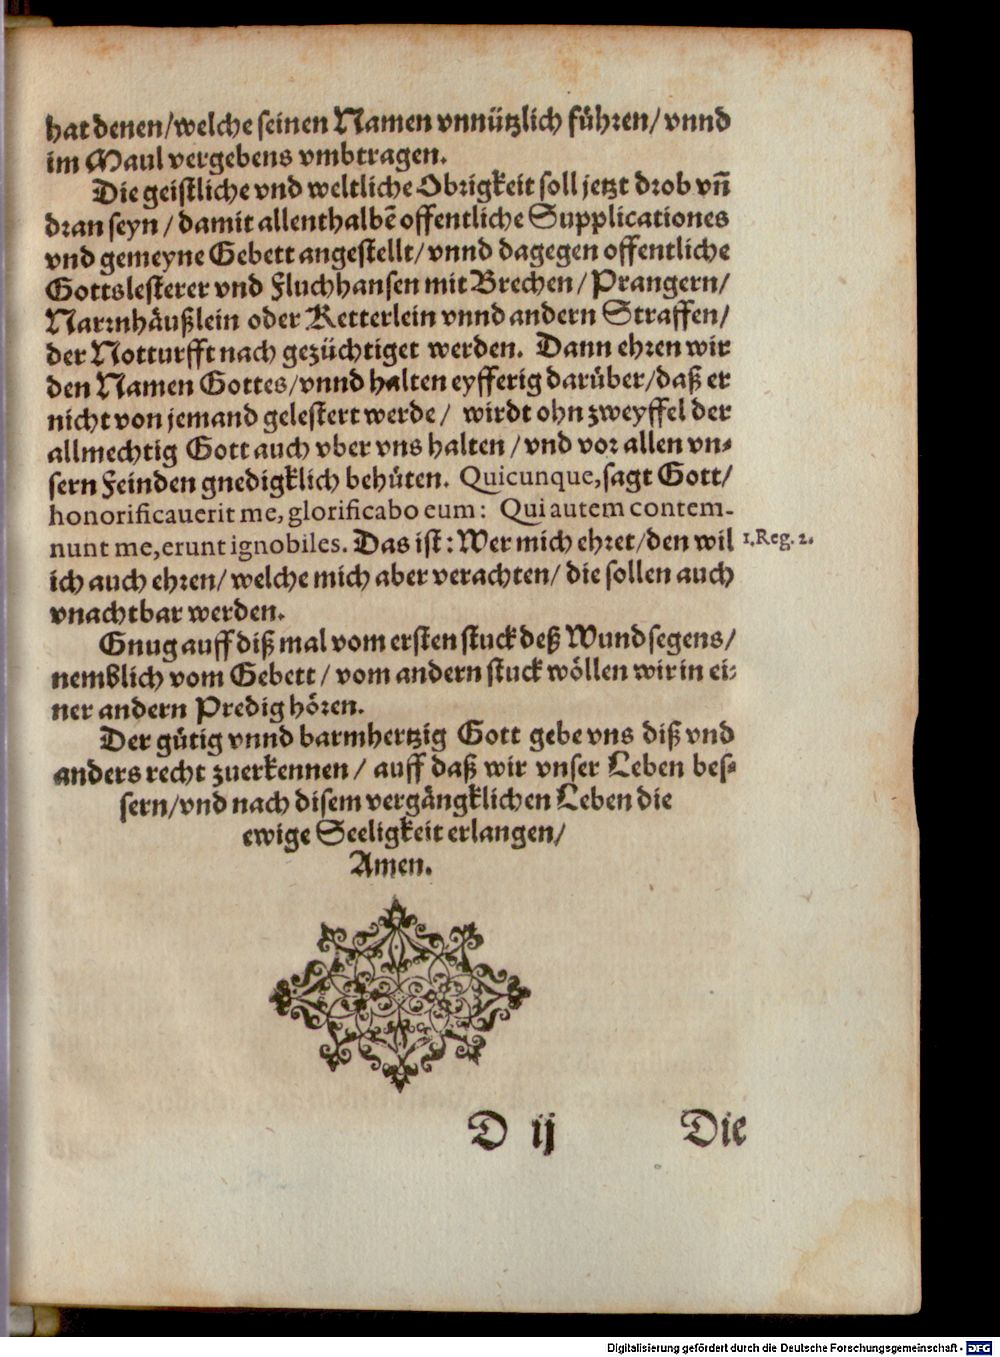 hat denen/welche seinen Namen vnnützlich führen/ vnnd
im Maul vergebens vmbtragen.
Die geistliche vnd weltliche Obrigkeit soll jetzt drob vñ
dran seyn / damit allenthalbẽ offentliche Supplicationes
vnd gemeyne Gebett angestellt/ vnnd dagegen offentliche
Gottslesterer vnd Fluchhansen mit Brechen / Prangern/
Narrnhäußlein oder Ketterlein vnnd andern Straffen/
der Notturfft nach gezüchtiget werden. Dann ehren wir
den Namen Gottes/vnnd halten eyfferig darüber/daß er
nicht von jemand gelestert werde / wirdt ohn zweyffel der
allmechtig Gott auch vber vns halten / vnd vor allen vn-
sern Feinden gnedigklich behüten. Quicunque, sagt Gott/
honorificauerit me, glorificabo eum: Qui autem contem-
nunt me, erunt ignobiles. Das ist: Wer mich ehret/den wil 1. Reg. 2.
ich auch ehren/ welche mich aber verachten/ die sollen auch
vnachtbar werden.
Gnug auff diß mal vom ersten stuck deß Wundsegens/
nemblich vom Gebett / vom andern stuck wöllen wir in ei-
ner andern Predig hören.
Der gütig vnnd barmhertzig Gott gebe vns diß vnd
anders recht zuerkennen / auff daß wir vnser Leben bes-
sern/vnd nach disem vergängklichen Leben die
ewige Seeligkeit erlangen/
Amen.
D ij Die
Digitalisierung gefördert durch die Deutsche Forschungsgemeinschaft - DFG